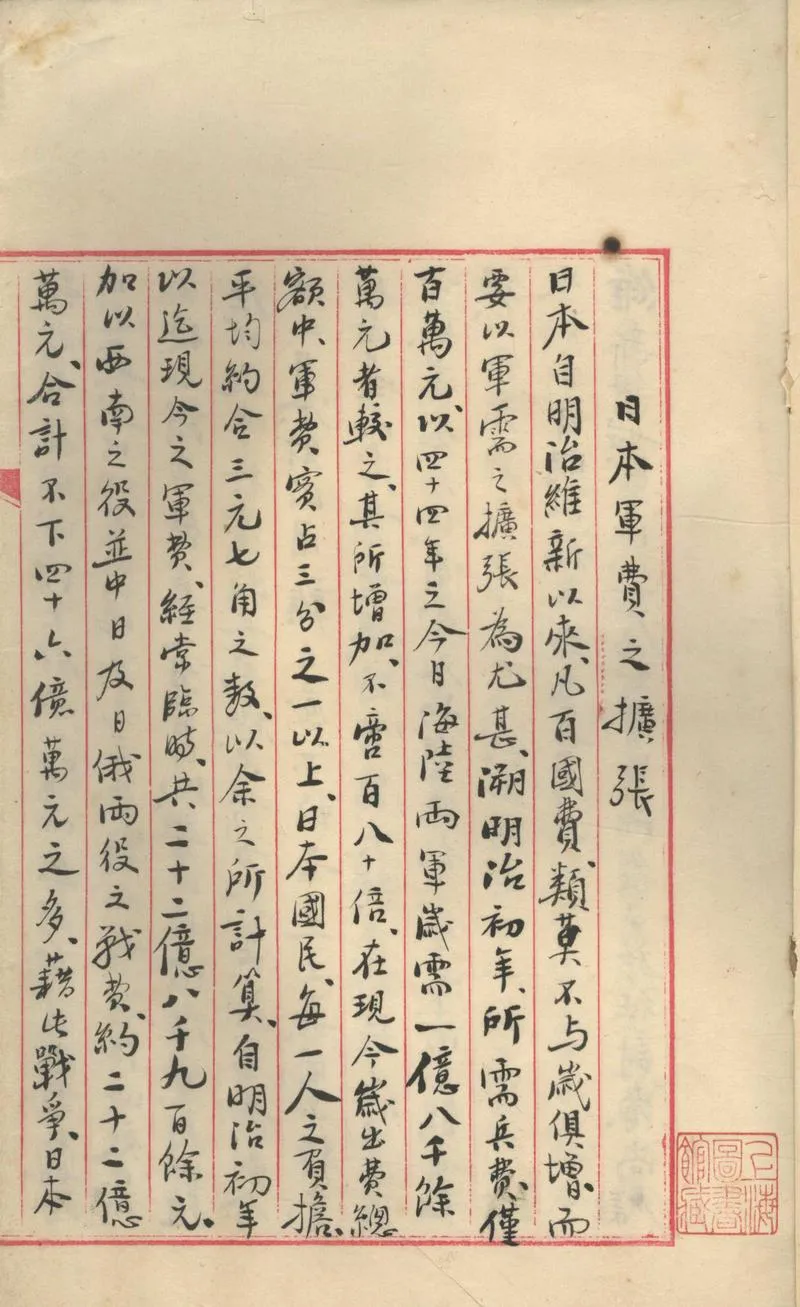 日本軍費之擴張
日本自明治維新以來、凡百國費、類莫不与歲俱增、而
要以軍需之擴張為尤甚、溯明治初年、所需兵費、僅
百萬元、以四十四年之今日海陸兩軍歲需一億八千餘
萬元者較之、其所增加、不啻百八十倍、在現今歲出費總
額中、軍費實占三分之一以上、日本國民、每一人之負擔、
平均約合三元七角之数、以余之所計算、自明治初年
以迄現今之軍費、經常臨時、共二十二億八千九百餘元、
加以西南之役並中日及日俄兩役之戰費、約二十二億
萬元、合計不下四十六億萬元之多、藉此戰爭、日本
上海圖書館藏